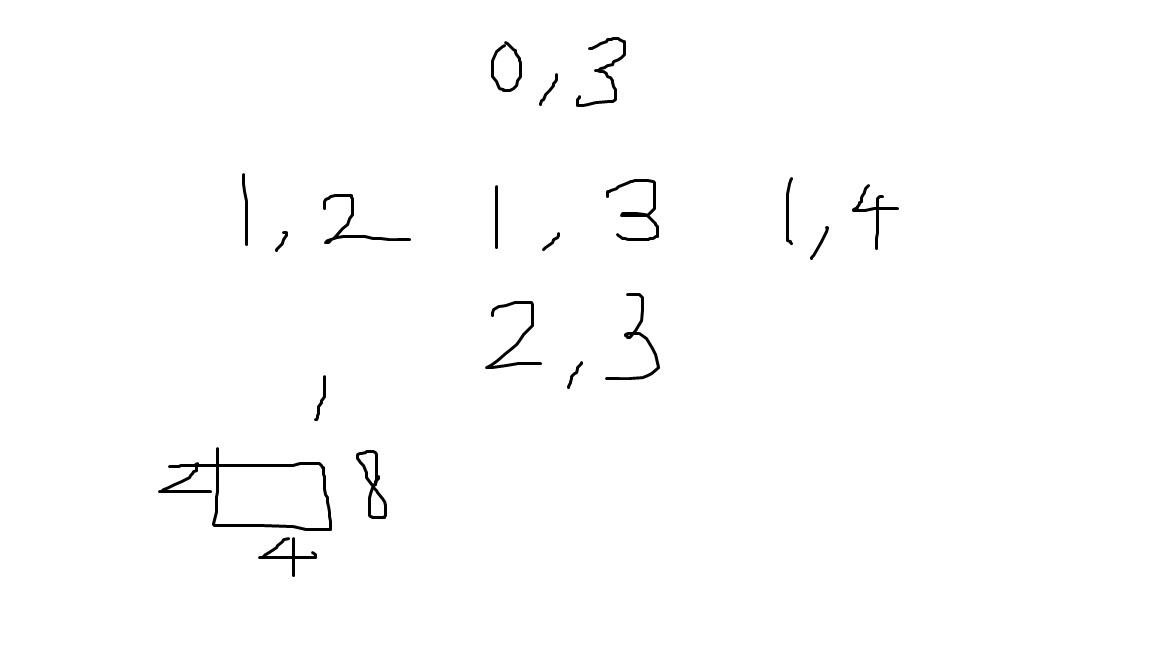 0,3
1,2 1,3 1,4
2,3
1
2 8
4